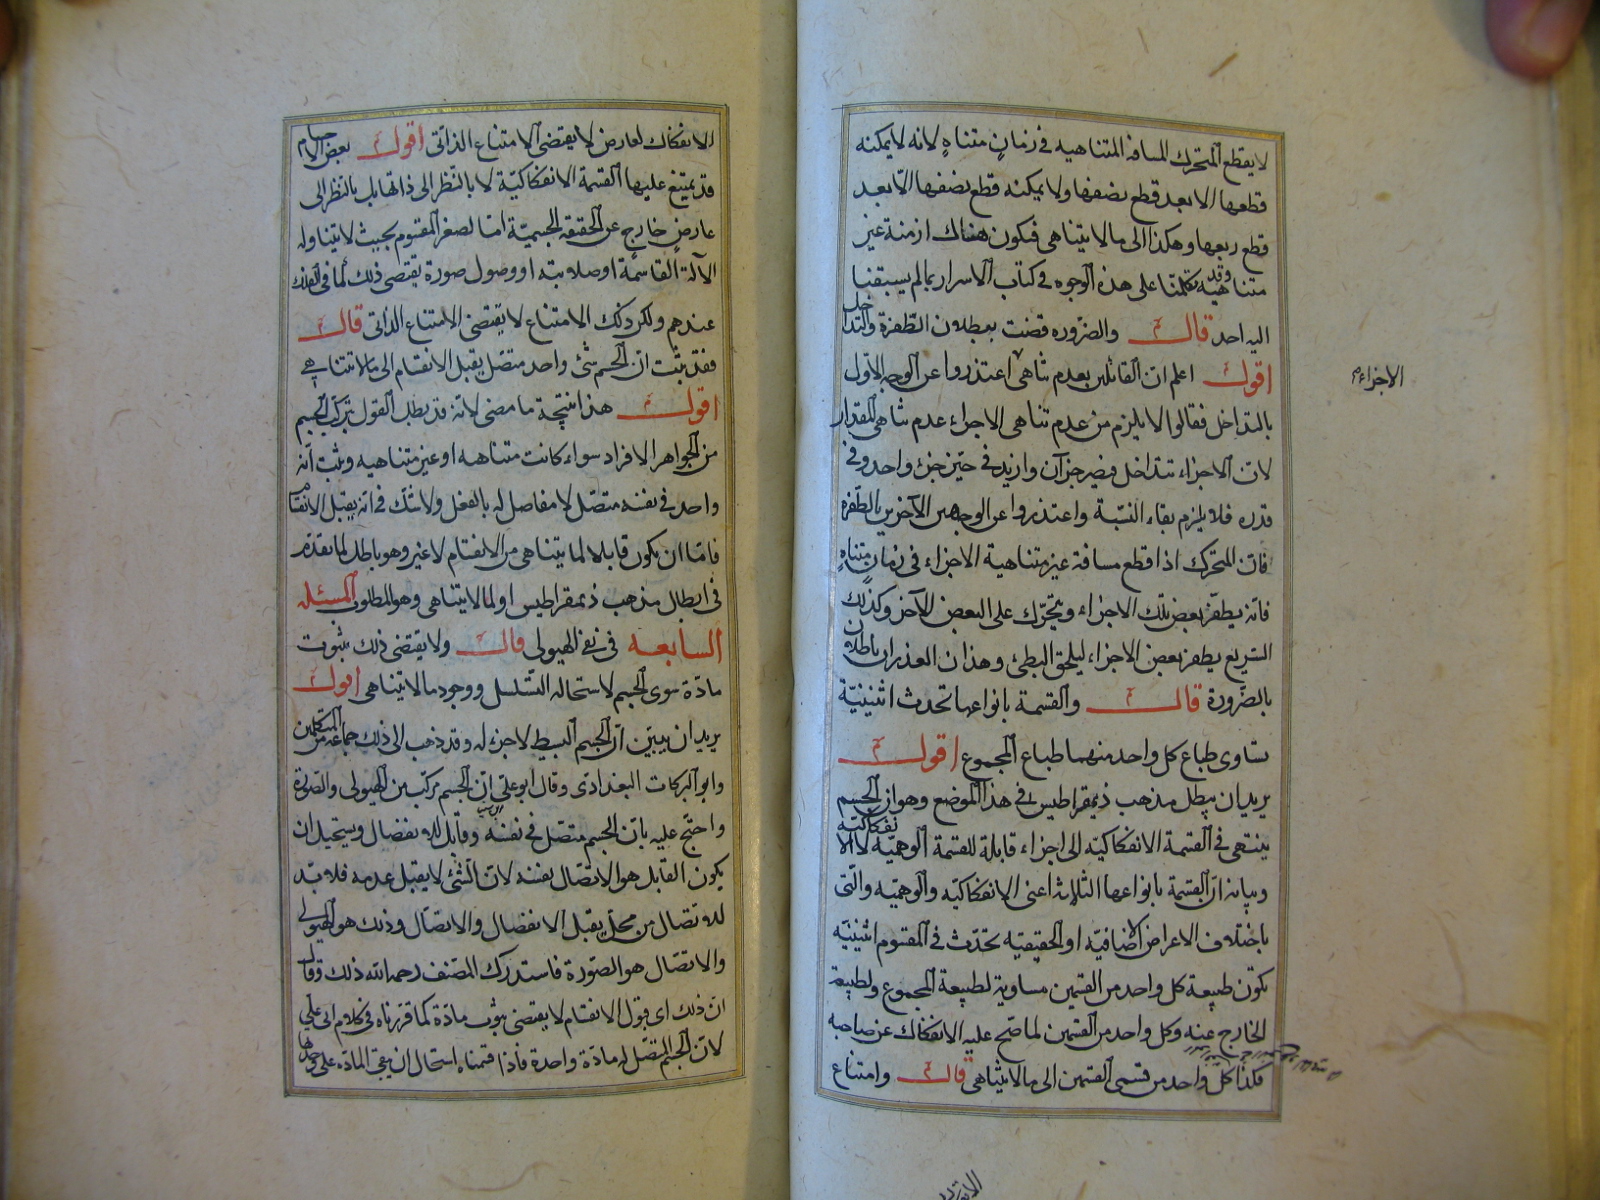 لا يقطع المتحرك المسافة المتناهيه فى زمان متناه لانه لا يمكنه
قطعها الا بعد قطع نصفها ولا يمكنه قطع نصفها الا بعد
قطع ربعها وهكذا الى ما لا يتناهى فيكون هناك ازمنة غير
متناهية وقد تكلمنا على هذه الوجوه فى كتاب الاسرار بما لم يسبقنا
اليه احد قال والضروره قضت ببطلان الطفرة والتداخل
اقول اعلم ان القائلين بعدم تناهى اعتذروا عن الوجه الاول
الاجزاء
بالتداخل فقالوا لا يلزم من عدم تناهى الاجزاء عدم تناهى المقدار
لان الاجزاء تتداخل فيصير جزآن وازيد فى حيز جزء واحد وفى
قدره فلا يلزم بقاء النسبة واعتذروا عن الوجهين الآخرين بالطفرة
فان المتحرك اذا قطع مسافة غير متناهية الاجزاء فى زمان متناه
فانه يطفر بعض تلك الاجزاء ويتحرك على البعض الآخر وكذلك
السريع يطفر بعض الاجزاء ليلحق البطئ وهذان العذران باطلان
بالضرورة قال والقسمة بانواعها تحدث اثنينية
تساوى طباع كل واحد منهما طباع المجموع اقول
يريد ان يبطل مذهب ذيمقراطيس فى هذا الموضع وهو ان الجسم
ينتهى فى القسمة الانفكاكيه الى اجزاء قابلة للقسمة الوهميه لا الانفكاكيه
وبيانه ان القسمة بانواعها الثلاثة اعنى الانفكاكيه والوهميه والتى
باختلاف الاعراض الاضافيه او الحقيقيه تحدث فى المقسوم اثنينيه
تكون طبيعة كل واحد من القسمين مساوية لطبيعة المجموع ولطبيعة
الخارج عنه وكل واحد من القسمين لما صح عليه الانفكاك عن صاحبه
فكذا كل واحد من قسمى القسمين الى ما لا يتناهى قال وامتناع
الانفكاك لعارض لا يقتضى الامتناع الذاتى اقول بعض الاجسام
قد يمتنع عليها القسمة الانفكاكية لا بالنظر الى ذاتها بل بالنظر الى
عارض خارج عن الحقيقة الجسمية اما لصغر المقسوم بحيث لا يتناوله
الآلة القاسمة او صلابته او وصول صورة يقتضى ذلك كما فى الفلك
عندهم ولكن ذلك الامتناع لا يقتضى الامتناع الذاتى قال
فقد ثبت ان الجسم شئ واحد متصل يقبل الانقسام الى ما لا يتناهى
اقول هذا نتيجة ما مضى لانه قد بطل القول بتركب الجسم
من الجواهر الافراد سواء كانت متناهيه او غير متناهيه وثبت انه
واحد فى نفسه متصل لا مفاصل له بالفعل ولا شك فى انه يقبل الانقسام
فاما ان يكون قابلا لما يتناهى من الانقسام لا غير وهو باطل لما تقدم
فى ابطال مذهب ذيمقراطيس او لما لا يتناهى وهو المطلوب المسئله
السابعه فى نفى الهيولى قال ولا يقتضى ذلك ثبوت
مادة سوى الجسم لاستحالة التسلسل ووجود ما لا يتناهى اقول
يريد ان يبين ان الجسم البسيط لا جزء له وقد ذهب الى ذلك جماعة من المتكلمين
وابو البركات البغدادى وقال ابو على ان الجسم مركب من الهيولى والصورة
واحتج عليه بان الجسم متصل فى نفسه وقابل للانفصال ويستحيل ان
يكون القابل هو الاتصال نفسه لان الشئ لا يقبل عدمه فلا بد
للاتصال من محل يقبل الانفصال والاتصال وذلك هو الهيولى
والاتصال هو الصورة فاستدرك المصنف رحمه الله ذلك وقال
ان ذلك اى قبول الانقسام لا يقتضى ثبوت مادة كما قررناه فى كلام ابى على
لان الجسم المتصل له مادة واحدة فاذا قسمناه استحال ان يبقى المادة على وحدتها